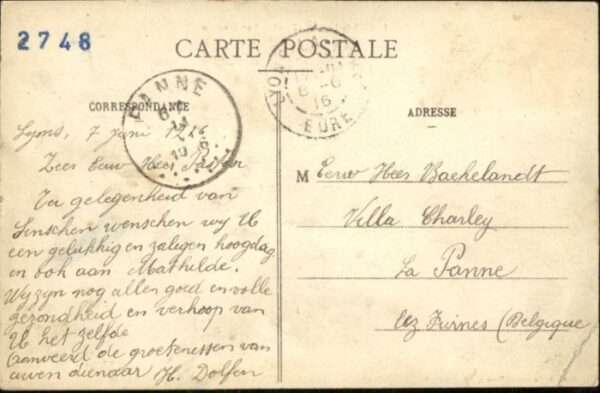 2748
CARTE POSTALE
CORRESPONDANCE
ADRESSE
PANNE
EURE
Lyons, 7 Juni 1916
Zeer Eeuw Heer
Ter gelegenheid van
Sinschen wenschen wy U
een gelukkig en zalegen hoogdag
en ook aan Mathilde.
Wy zyn nog allen goed en volle
gezondheid en verhoop van
U het zelfde
Aanveerd de groetenessen van
uwen dienaar H. Dolfen
M Eeuw Heer Backelandt
Villa Charley
La Panne
lez Furnes (Belgique